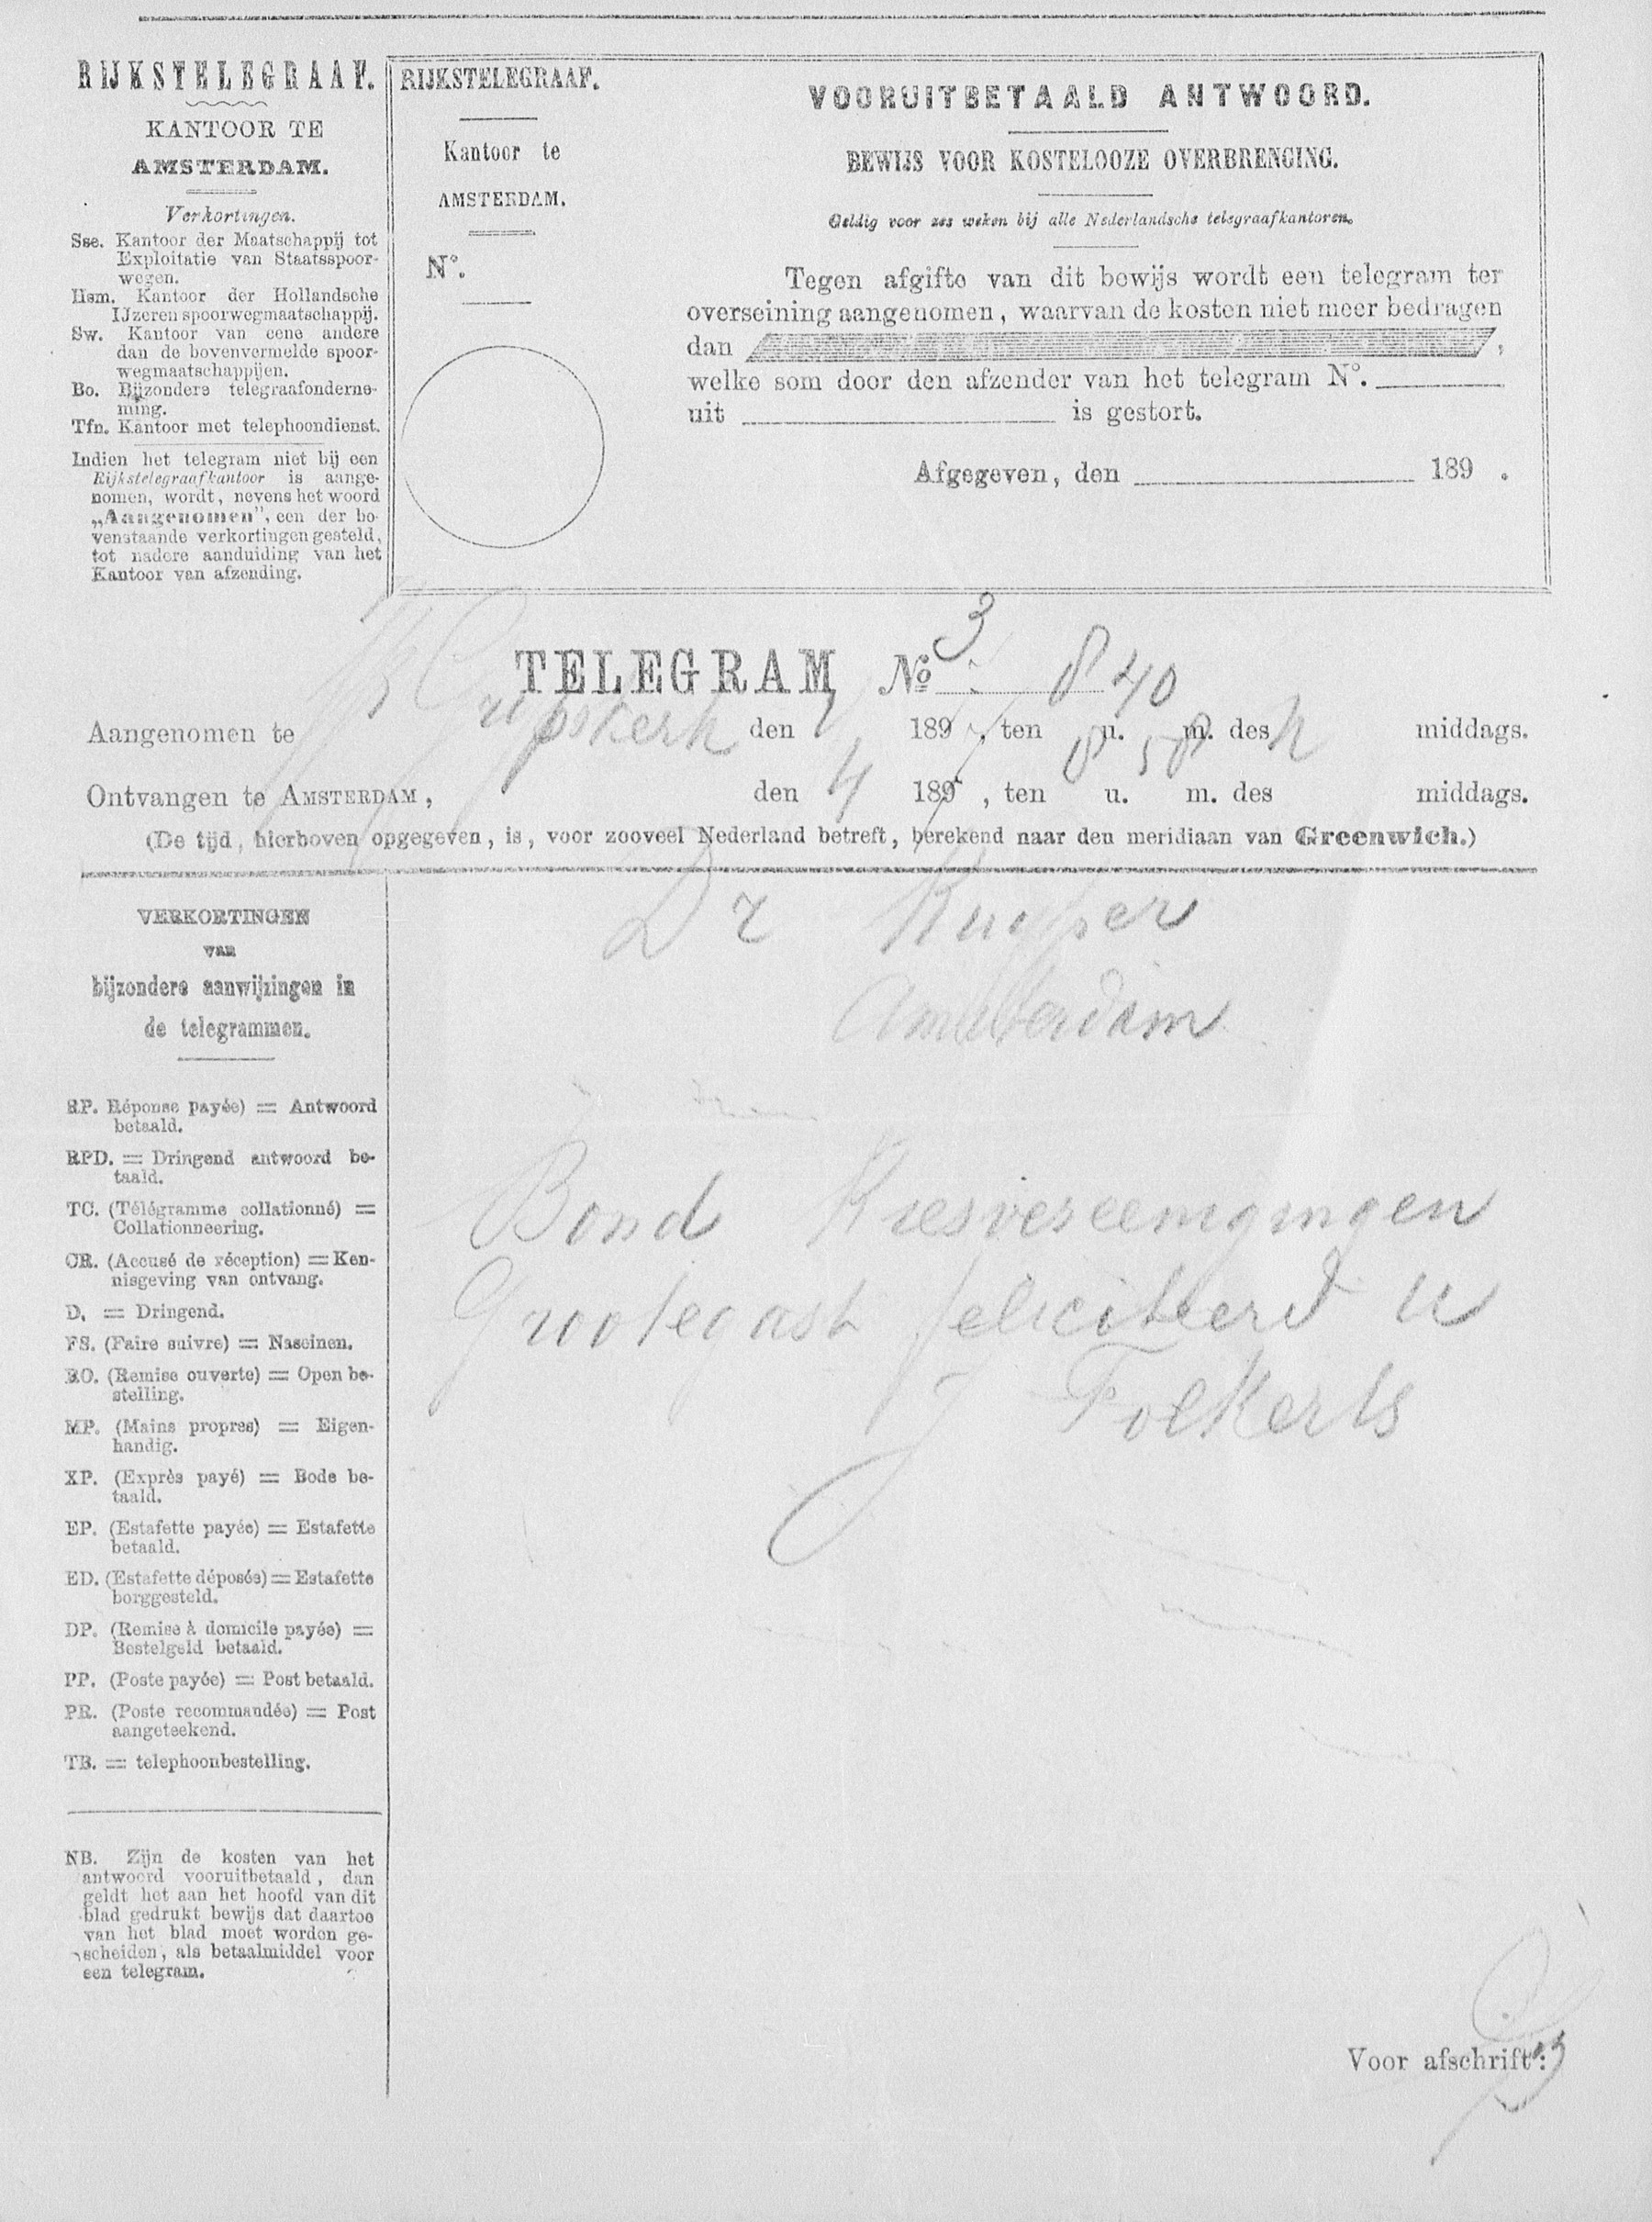 RIJKSTELEGRAAF.
KANTOOR TE
AMSTERDAM.
Verkortingen.
Sse. Kantoor der Maatschappij tot
Exploitatie van Staatsspoor-
wegen.
Hsm. Kantoor der Hollandsche
IJzeren spoorwegmaatschappij.
Sw. Kantoor van eene andere
dan de bovenvermelde spoor-
wegmaatschappijen.
Bo. Bijzondere telegraafonderne-
ming.
Tfn. Kantoor met telephoondienst.
Indien het telegram niet bij een
Rijkstelegraafkantoor is aange-
nomen, wordt, nevens het woord
„Aangenomen”, een der bo-
venstaande verkortingen gesteld,
tot nadere aanduiding van het
Kantoor van afzending.
RIJKSTELEGRAAF.
Kantoor te
AMSTERDAM.
N°.
VOORUITBETAALD ANTWOORD.
BEWIJS VOOR KOSTELOOZE OVERBRENGING.
Geldig voor zes weken bij alle Nederlandsche telegraafkantoren.
Tegen afgifte van dit bewijs wordt een telegram ter
overseining aangenomen, waarvan de kosten niet meer bedragen
dan ,
welke som door den afzender van het telegram N°.
uit is gestort.
Afgegeven, den 189 .
TELEGRAM No 3
8 40
Aangenomen te Grijpskerk den 189 , ten u. m. des middags.
8 58
Ontvangen te AMSTERDAM, den 4 189 , ten u. m. des middags.
(De tijd, hierboven opgegeven, is, voor zooveel Nederland betreft, berekend naar den meridiaan van Greenwich.)
VERKORTINGEN
VAN
bijzondere aanwijzingen in
de telegrammen.
RP. Réponse payée) = Antwoord
betaald.
RPD. = Dringend antwoord be-
taald.
TC. (Télégramme collationné) =
Collationneering.
CR. (Accusé de réception) = Ken-
nisgeving van ontvang.
D. = Dringend.
FS. (Faire suivre) = Naseinen.
RO. (Remise ouverte) = Open be-
stelling.
MP. (Mains propres) = Eigen-
handig.
XP. (Exprès payé) = Bode be-
taald.
EP. (Estafette payée) = Estafette
betaald.
ED. (Estafette déposée) = Estafette
borggesteld.
DP. (Remise à domicile payée) =
Bestelgeld betaald.
PP. (Poste payée) = Post betaald.
PR. (Poste recommandée) = Post
aangeteekend.
TB. = telephoonbestelling.
NB. Zijn de kosten van het
antwoord vooruitbetaald, dan
geldt het aan het hoofd van dit
blad gedrukt bewijs dat daartoe
van het blad moet worden ge-
scheiden, als betaalmiddel voor
een telegram.
Dr Kuyper
Amsterdam
Bond Kiesvereenigingen
Grootegast feliciteerd u
J Folkerts
Voor afschrift: